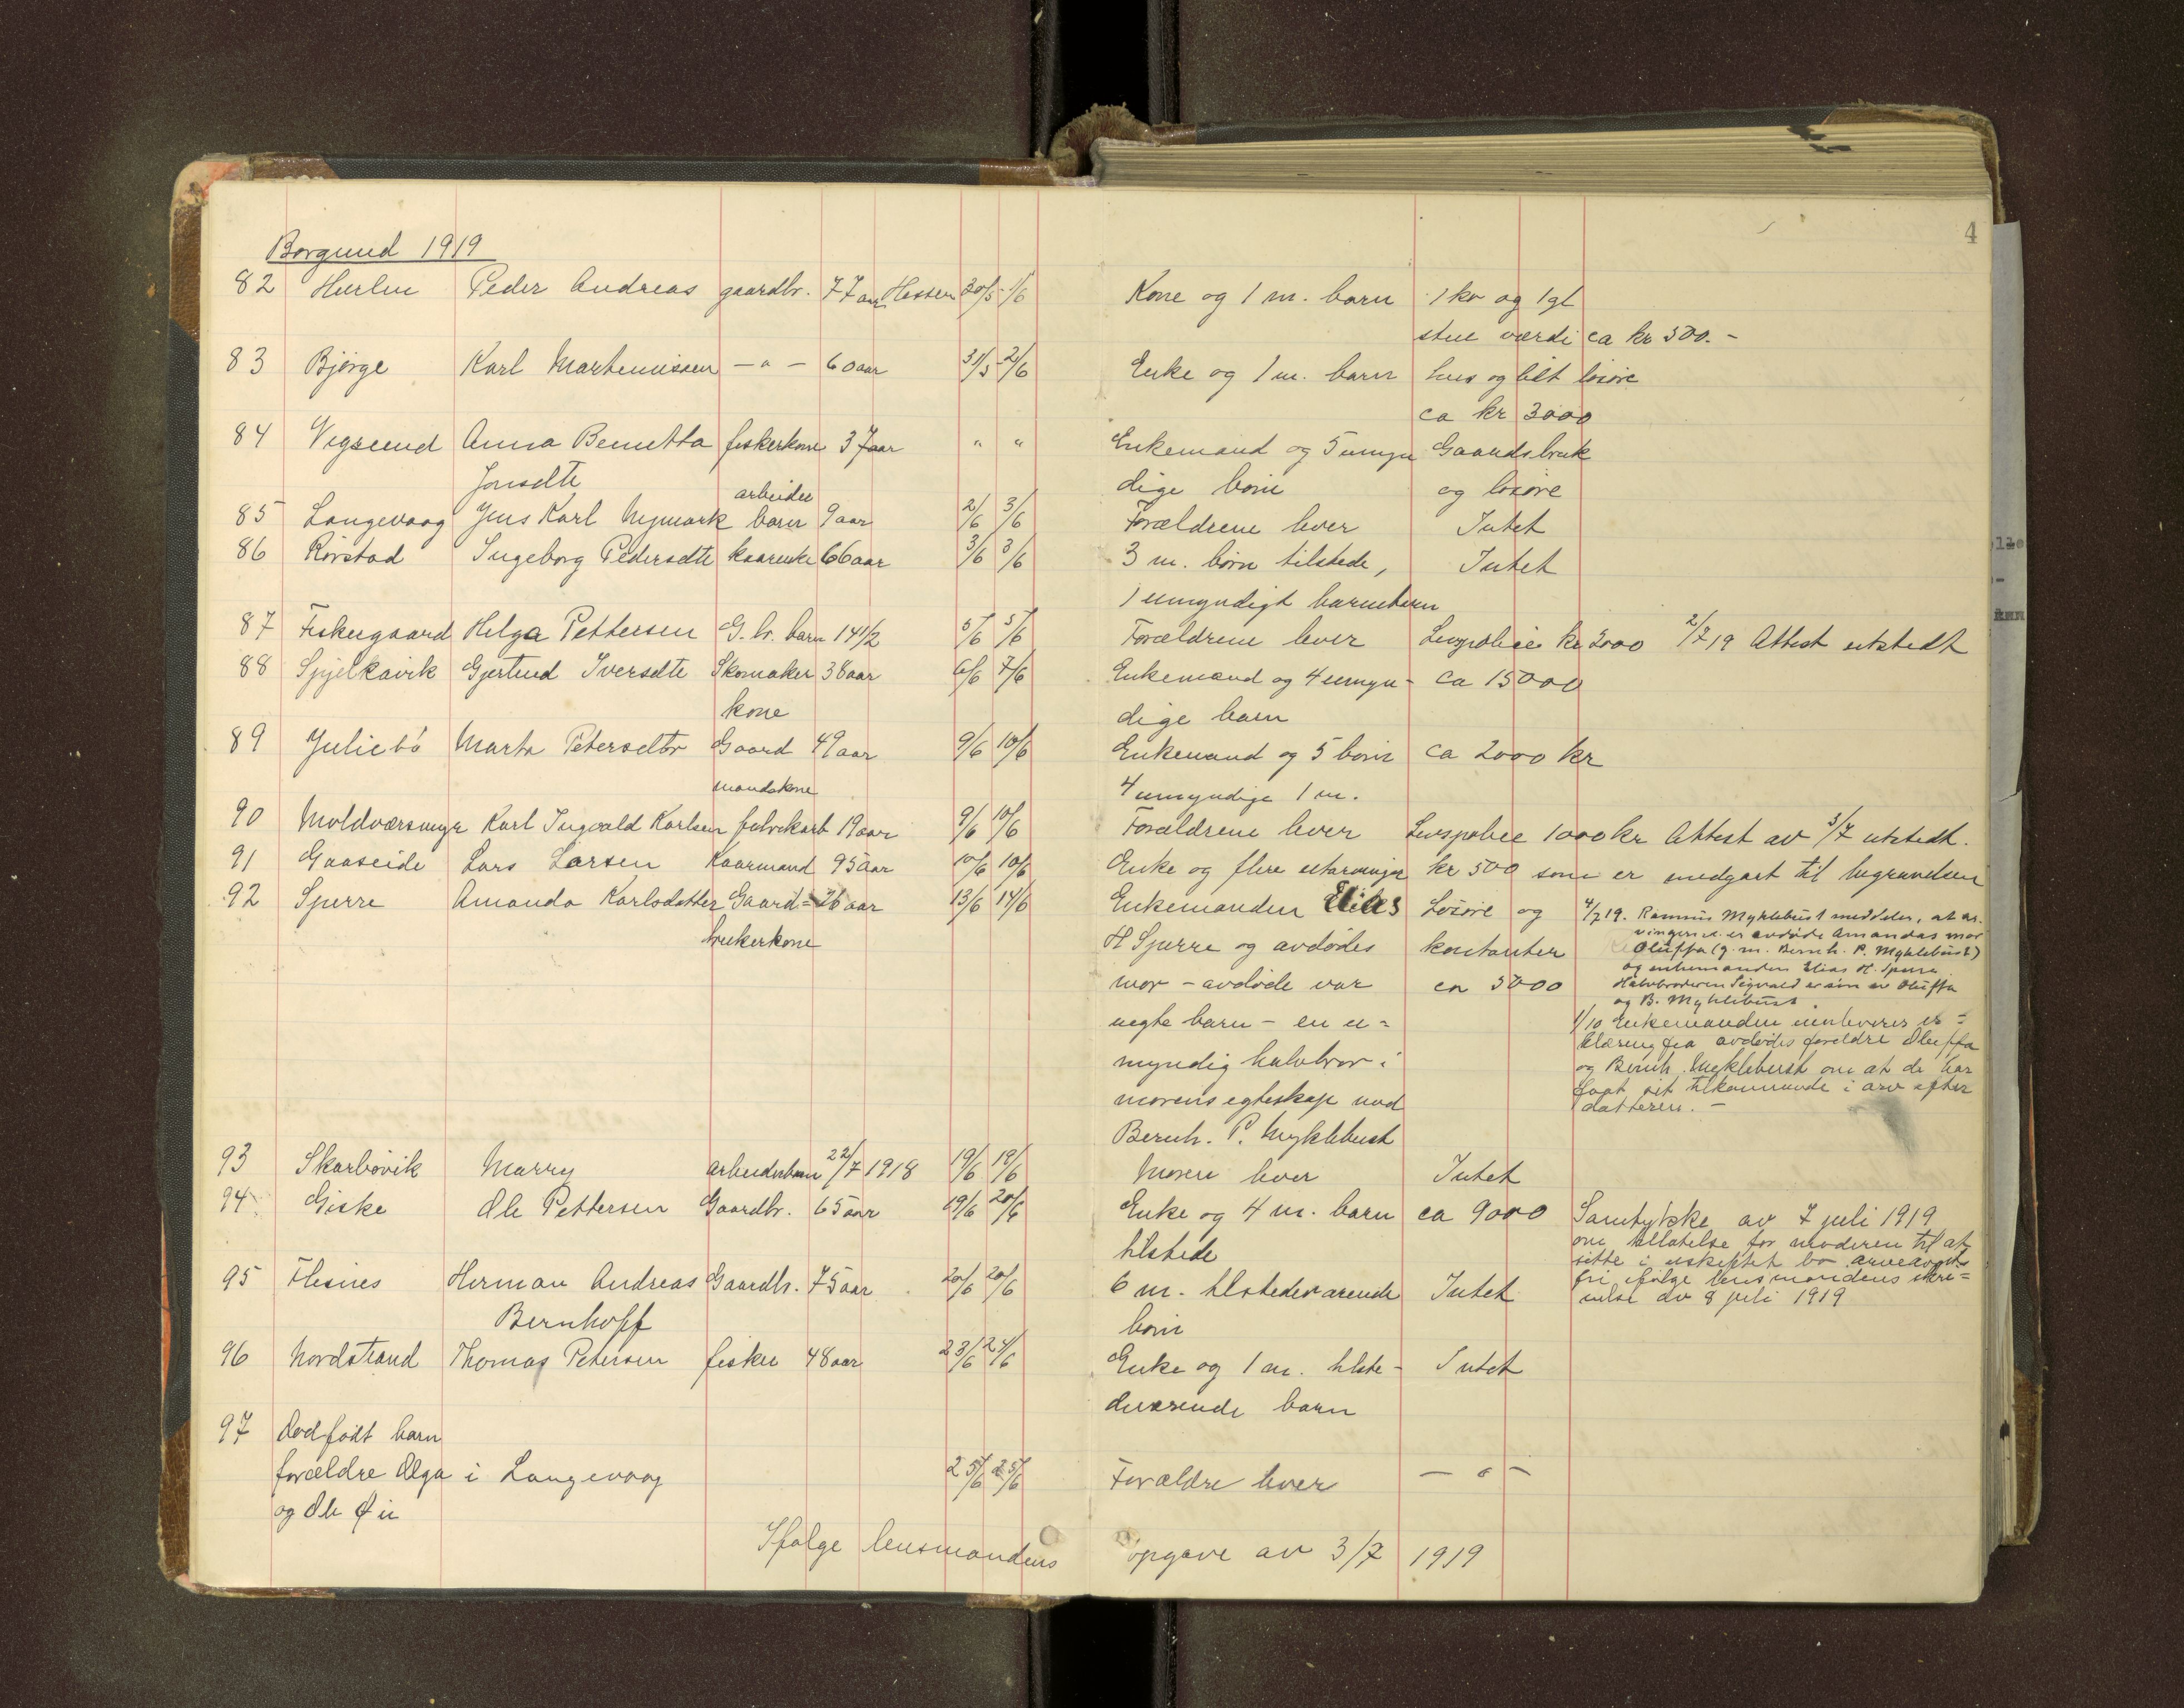 4
Borgund 1919
82 Hurlen Peder Andreas gaardbr. 77 aar Hessen 30/5 1/6 Kone og 1 m. barn 1 ko og 1 gl
stue værdi ca kr 500.-
83 Bjørge Karl Martinussen — " — 60 aar 31/5 2/6 Enke og 1 m. barn hus og litt løsøre
ca kr 3000
84 Vegsund Anna Bernetta fiskerkone 37 aar " " Enkemand og 5 umyn Gaardsbruk
Jonsdtr dige børn og løsøre
arbeider
85 Langevaag Jens Karl Nymark barn 9 aar 2/6 3/6 Forældrene lever Intet
86 Rørstad Ingeborg Pedersdtr kaarenke 66 aar 3/6 3/6 3 m. børn tilstede, Intet
1 umyndigt barnebarn
87 Fiskergaard Helga Pettersen G. br. barn 14 1/2 5/6 5/6 Forældrene lever Livspolice kr 2000 2/7 19 Attest utstedt
88 Spjelkavik Gjertrud Iversdtr Skomaker 38 aar 6/6 7/6 Enkemand og 4 umyn- ca 15000
kone dige barn
89 Juliebø Marta Petersdtr Gaard 49 aar 9/6 10/6 Enkemand og 5 børn ca 2000 kr
mandskone 4 umyndige 1 m.
90 Moldværsmyr Karl Ingvald Karlsen fabrikarb 19 aar 9/6 10/6 Forældrene lever Livspolice 1000 kr Attest av 3/7 utstedt.
91 Gaaseide Lars Larsen Kaarmand 95 aar 10/6 10/6 Enke og flere utarvinger kr 500 som er medgaat til begravelsen
92 Sperre Amanda Karlsdatter Gaard= 26 aar 13/6 14/6 Enkemanden Elias Løsøre og 4/7 19. Rasmus Myklebust meddeler, at ar-
vingerne er avdøde Amandas mor
brukerkone H Sperre og avdødes kontanter Oluffa (g. m. Bernh. P. Myklebust)
og enkemanden Elias H. Sperre.
mor - avdøde var ca 5000 Halvbroderen Sigvald er søn av Oluffa
og B. Myklebust.
uegte barn - en u= 1/10 Enkemanden innleverer er=
klæring fra avdødes foreldre Oluffa
myndig halvbror i og Bernh. Myklebust om at de har
faat sit tilkommende i arv efter
morens egteskap med datteren. -
Bernh. P. Myklebust
93 Skarbøvik Marry arbeiderbarn 22/7 1918 19/6 19/6 Moren lever Intet
94 Giske Ole Pettersen Gaardbr. 65 aar 19/6 20/6 Enke og 4 m. barn ca 9000 Samtykke av 7 juli 1919
om tillatelse for moderen til at
tilstede sitte i uskiftet bo arveavgift
95 Flesnes Herman Andreas Gaardbr. 75 aar 20/6 20/6 6 m. tilstedeværende Intet fri ifølge lensmandens skri=
velse av 8 juli 1919
Bernhoff børn
96 Nordstrand Thomas Petersen fisker 48 aar 23/6 24/6 Enke og 1 m. tilste- Intet
deværende barn
97 Dødfødt barn
forældre Olga i Langevaag 25/6 25/6 Forældre lever — " —
og Ole
Ifølge lensmandens opgave av 3/7 1919